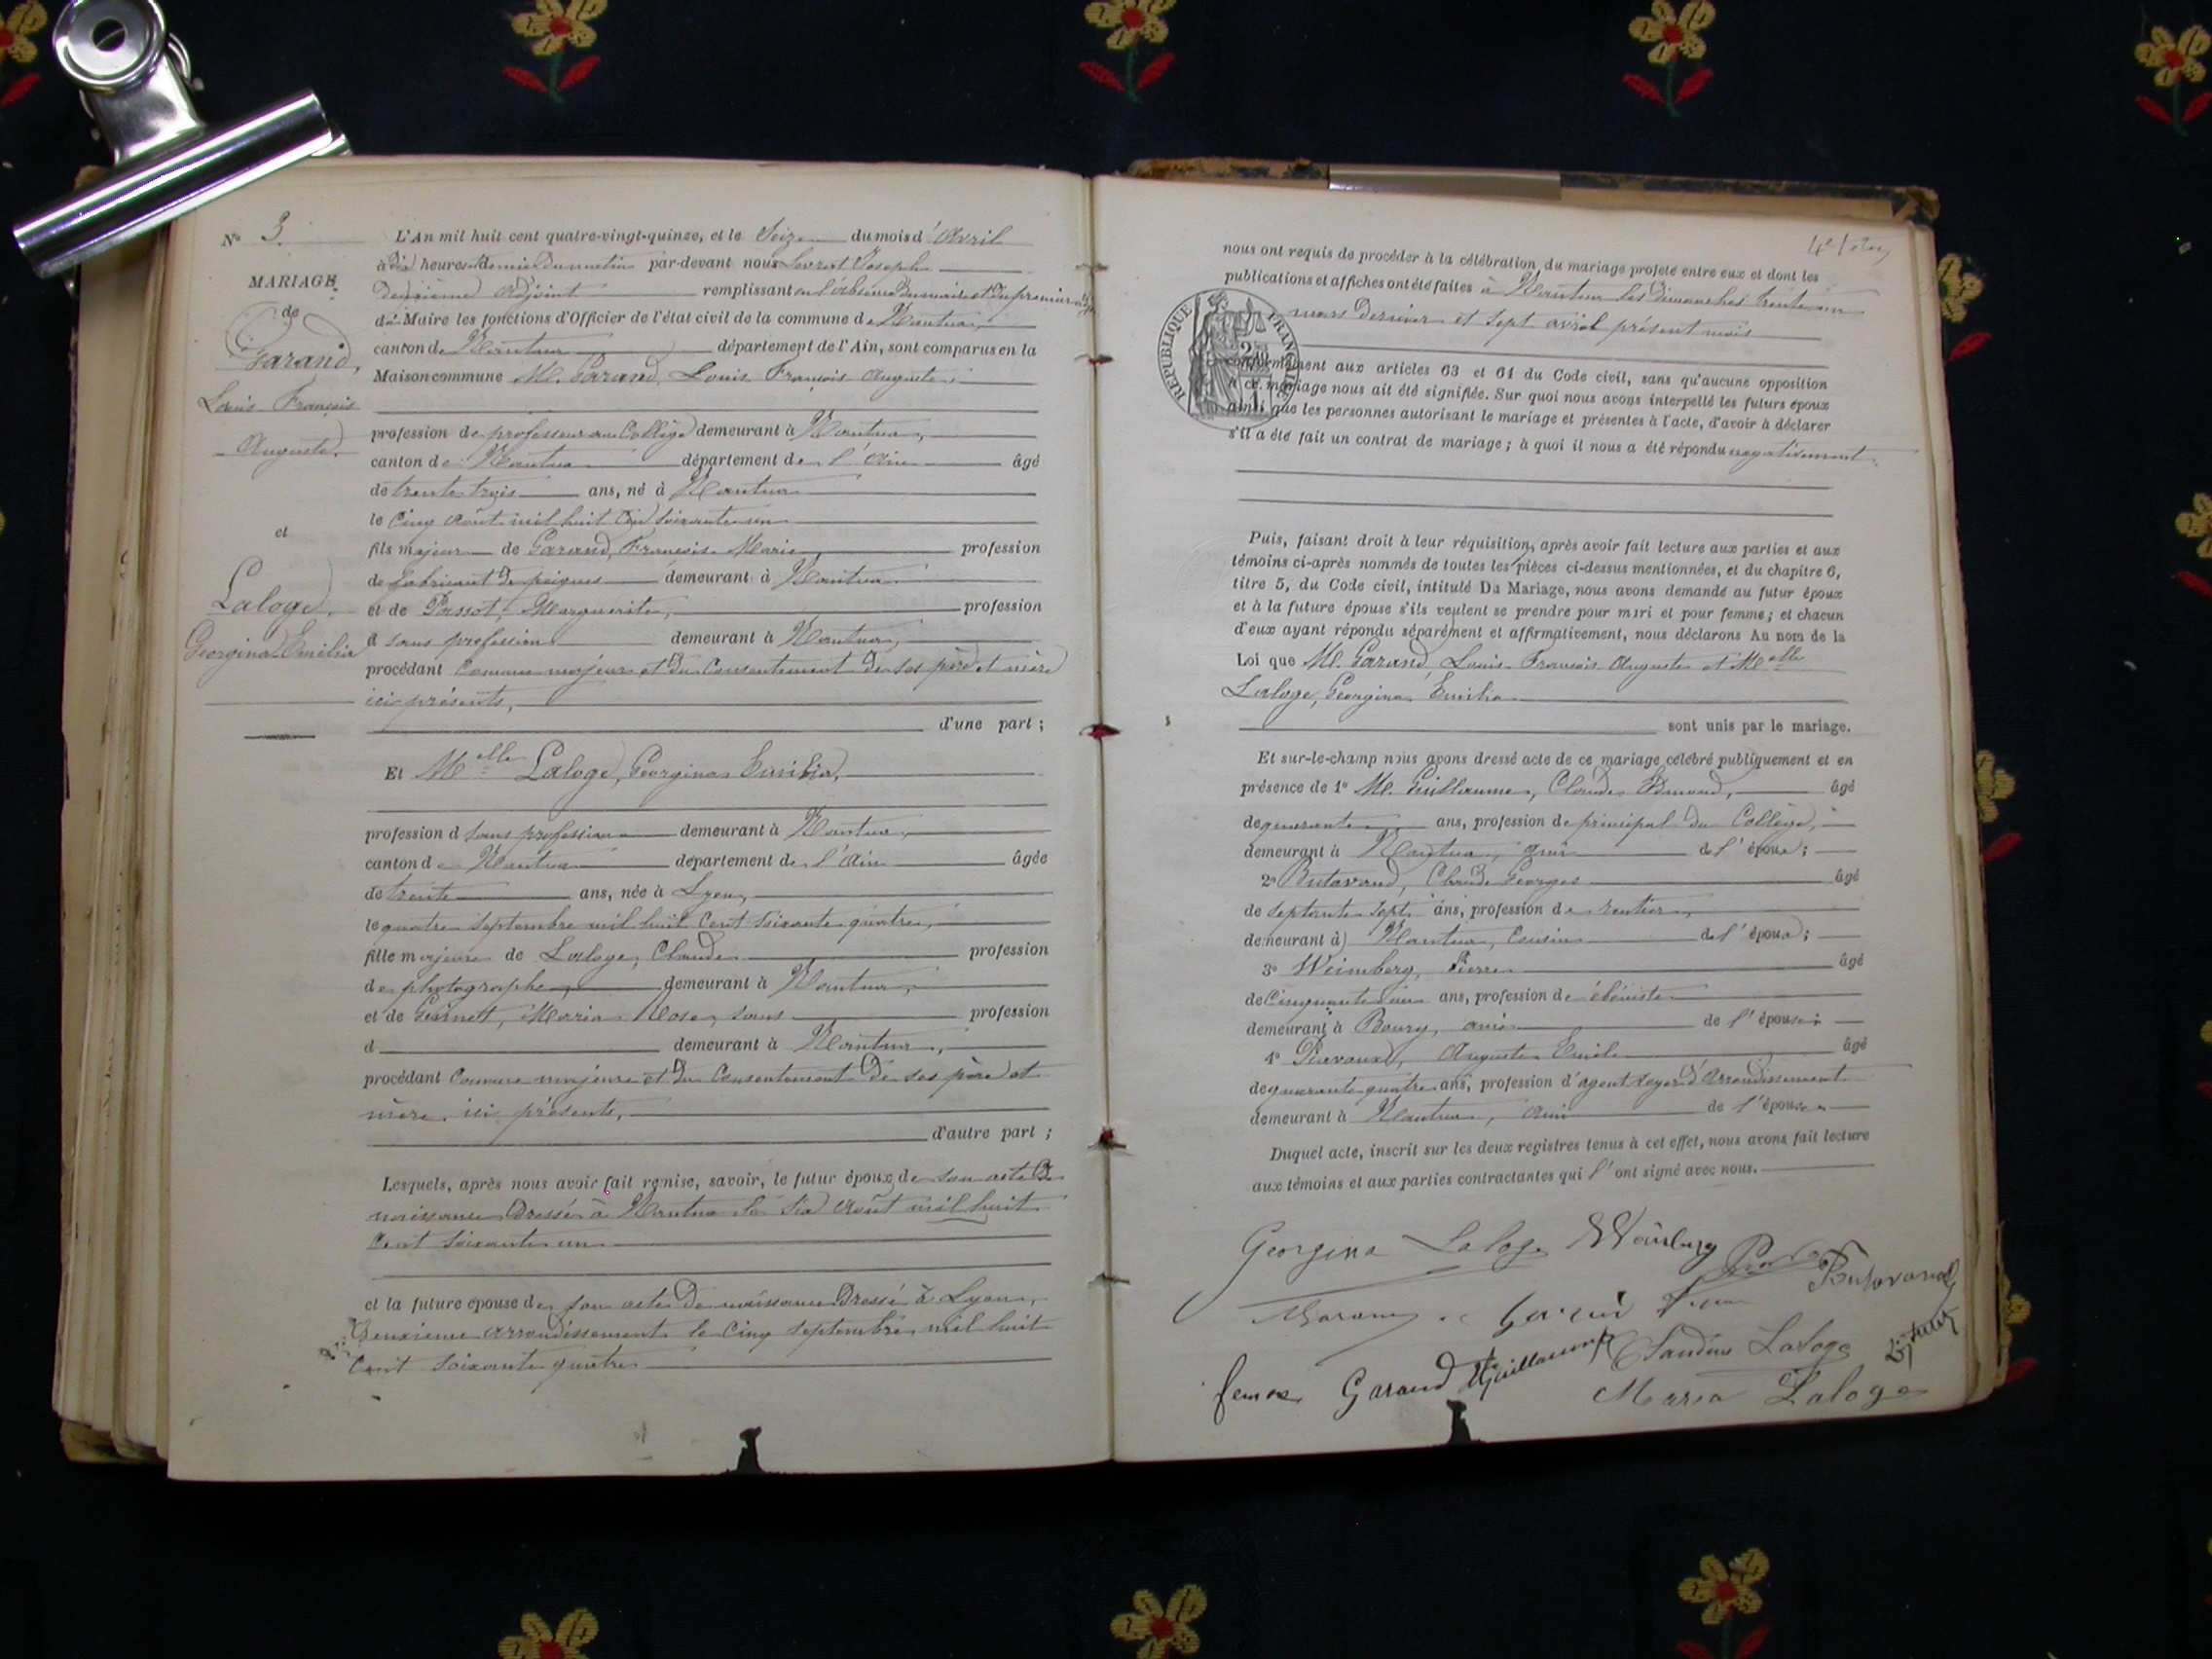 No 3.
L'An mil huit cent quatre-vingt-quinze, et le Seize du mois d'Avril
à dix heures et demie du matin par-devant nous Joseph
deuxième Adjoint remplissant en l'absence du maire et du premier
du Maire les fonctions d'Officier de l'état civil de la commune de Nantua,
canton de Nantua département de l'Ain, sont comparus en la
Maison commune M. Garand, Louis François Auguste,
profession de professeur au Collège demeurant à Nantua,
canton de Nantua département de l'Ain âgé
de trente trois ans, né à Nantua
le Cinq Août mil huit cent soixante un
fils majeur de Garand, François Marie, profession
de fabricant de peignes demeurant à Nantua
et de Passot, Marguerite, profession
d sans profession demeurant à Nantua,
procédant comme majeur et du consentement de ses père et mère
ici présents,
d'une part ;
MARIAGE
de
Garand,
Louis François
Auguste.
et
Laloge,
Georgina Emilia
Et Melle Laloge, Georgina Emilia,
profession d sans profession demeurant à Nantua,
canton de Nantua département de l'Ain âgée
de trente ans, née à Lyon,
le quatre Septembre mil huit cent soixante quatre,
fille majeure de Laloge, Claude profession
de photographe, demeurant à Nantua,
et de Maria Rose, sans profession
d demeurant à Nantua,
procédant comme majeure et du consentement de ses père et
mère, ici présents,
d'autre part ;
Lesquels, après nous avoir fait remise, savoir, le futur époux de son acte de
naissance dressé à Nantua le Six Août mil huit
cent soixante un
et la future épouse de son acte de naissance dressé à Lyon,
deuxième arrondissement le cinq septembre mil huit
cent soixante quatre
nous ont requis de procéder à la célébration du mariage projeté entre eux et dont les
publications et affiches ont été faites à Nantua les dimanches trente un
mars dernier et sept avril présent mois
RÉPUBLIQUE FRANÇAISE
conformément aux articles 63 et 64 du Code civil, sans qu'aucune opposition
à ce mariage nous ait été signifiée. Sur quoi nous avons interpellé les futurs époux
ainsi que les personnes autorisant le mariage et présentes à l'acte, d'avoir à déclarer
s'il a été fait un contrat de mariage ; à quoi il nous a été répondu négativement.
Puis, faisant droit à leur réquisition, après avoir fait lecture aux parties et aux
témoins ci-après nommés de toutes les pièces ci-dessus mentionnées, et du chapitre 6,
titre 5, du Code civil, intitulé Du Mariage, nous avons demandé au futur époux
et à la future épouse s'ils veulent se prendre pour mari et pour femme ; et chacun
d'eux ayant répondu séparément et affirmativement, nous déclarons Au nom de la
Loi que M. Garand, Louis François Auguste et Melle
Laloge, Georgina Emilia
sont unis par le mariage.
Et sur-le-champ nous avons dressé acte de ce mariage célébré publiquement et en
présence de 1° M. Guillaume, Claude Edmond, âgé
de quarante ans, profession de principal du Collège,
demeurant à Nantua, ami de l'époux ;
2° Butavand, Claude Georges âgé
de septante sept ans, profession de rentier,
demeurant à Nantua, cousin de l'époux ;
3° Weimberg, Pierre âgé
de Cinquante un ans, profession de ébéniste
demeurant à Bourg, ami de l'épouse
4° Auguste Emile âgé
de quarante quatre ans, profession d'agent voyer d'Arrondissement
demeurant à Nantua, ami de l'épouse
Duquel acte, inscrit sur les deux registres tenus à cet effet, nous avons fait lecture
aux témoins et aux parties contractantes qui l'ont signé avec nous.
Georgina Laloge
Butavand
Claudius Laloge
femme Garand Guillaume
Maria Laloge